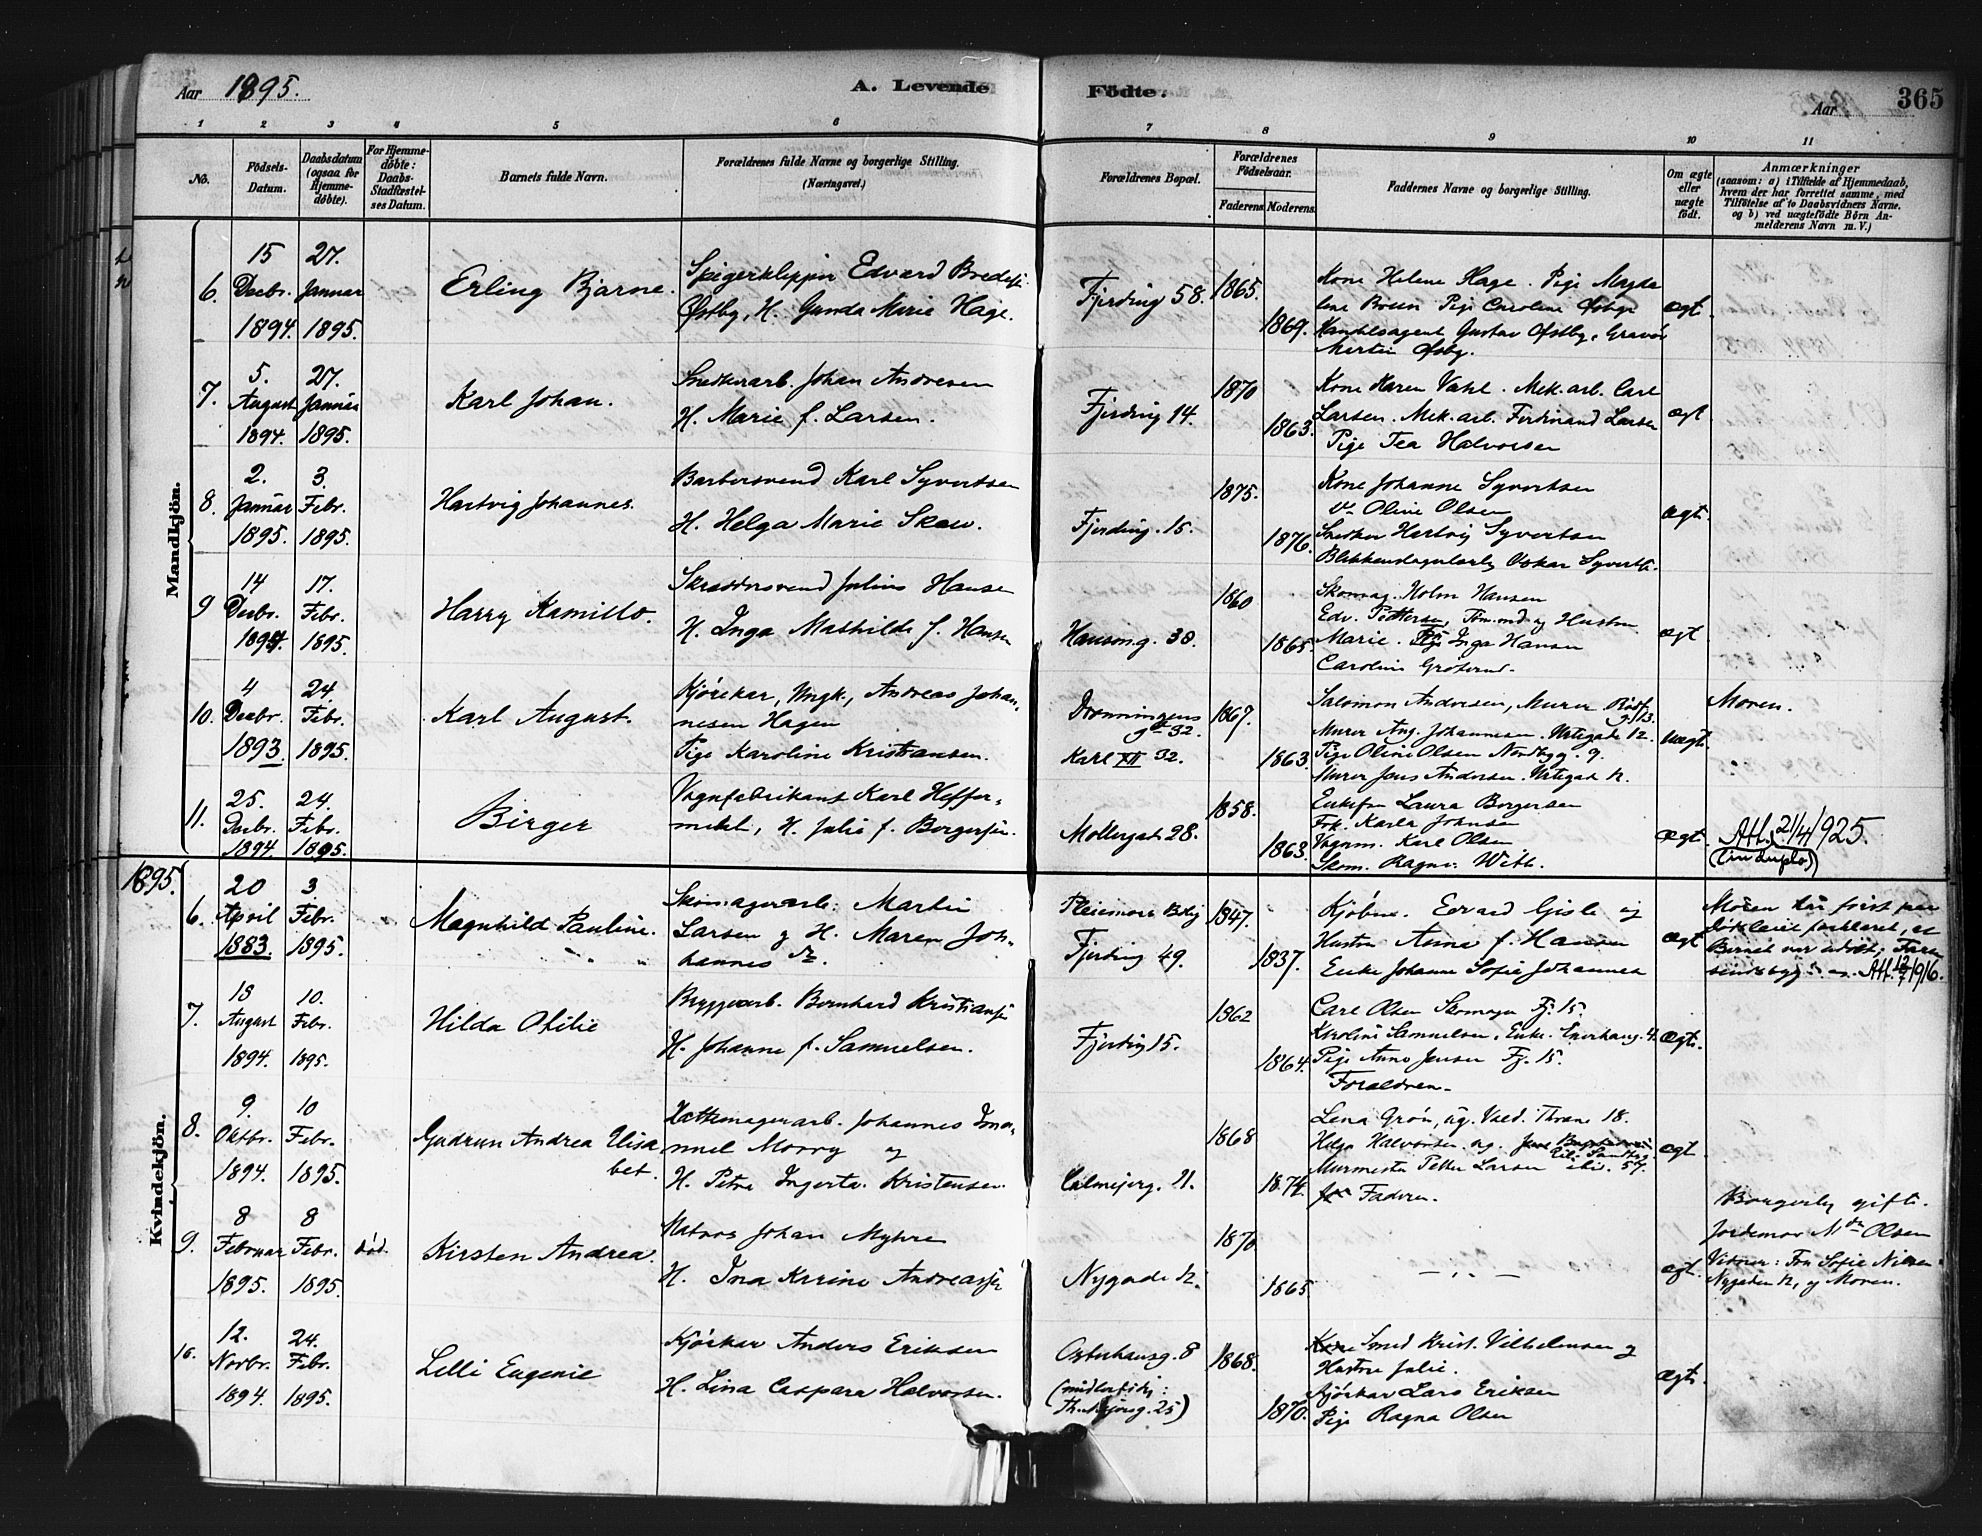 Aar 1895.
A. Levende Födte.
Aar
365
1 2 3 4 5 6 7 8 9 10 11
No.
Födsels-Datum.
Daabsdatum (ogsaa for Hjemmedöbte).
For Hjemmedöbte: Daabs-Stadfæstelses Datum.
Barnets fulde Navn.
Forældrenes fulde Navne og borgerlige Stilling. (Næringsvei.)
Forældrenes Bopæl.
Forældrenes Födselsaar.
Faderens Moderens
Faddernes Navne og borgerlige Stilling.
Om ægte eller uægte födt.
Anmærkninger
(saasom: a) i Tilfælde af Hjemmedaab, hvem der har forrettet samme, med Tilföielse af to Daabsvidners Navne. og b) ved uægtefödte Börn Anmelderens Navn m. V.)
Mandkjön.
6.
15 Decbr. 1894.
27. Januar 1895.
Erling Bjarne.
Edvard
Østby, H. Gunda Marie Hage.
Fjerding 58.
1865.
1869.
Kone Helene Hage. Pige Magda
lene Pige Caroline Østby
Handelsagent Gustav Østby, Gravør
ægt.
7.
5. August 1894.
27. Januar 1895.
Karl Johan.
Snedkerarb. Johan Andresen
H. Marie f. Larsen.
Fjerding 14.
1870
1863.
Kone Maren Mek. arb. Carl
Larsen. Mek. arb. Ferdinand Larsen
Pige Tea Halvorsen
ægt
8.
2. Januar 1895.
3. Febr. 1895.
Hartvig Johannes.
Barbersvend Karl Syvertsen
H. Helga Marie
Fjerding. 15.
1875.
1876.
Kone Johanne Syvertsen
Oline Olsen
Snedker Hartvig Syvertsen
Oskar
ægt.
9
14 Decbr. 1894.
17. Febr. 1895.
Harry Kamillo.
Skræddersvend Julius Hansen
H. Inga Mathilde f. Hansen
30.
1860
1865.
Holm Hansen
Edv. og Hustru
Marie. Inga Hansen
ægt
10.
4 Decbr. 1893.
24 Febr. 1895.
Karl August.
Kjørekar, Ungk., Andreas Johan-
nesen Hagen
Pige Karoline Kristiansen.
Dronningens
gt 32.
Karl XII 32.
1867.
1863.
Salomon Andersen, Murer
Murer Aug. Johannesen. Urtegade 12.
Pige Oline Olsen 9.
Murer Jens Andersen. Urtegad 12.
uægt.
Moren.
11.
25. Decbr. 1894.
24. Febr. 1895.
Birger
Vognfabrikant Karl Heffer-
mehl, H. Julie f. Borgersen.
Møllergade 28.
1858.
1863.
Enkefru Laura Borgersen
Frk. Karla Johnsen
Karl Olsen
ægt
Att. 21/4/925.
(in duplo)
1895.
Kvindekjön.
6.
20 April 1883.
3 Febr. 1895.
Magnhild Pauline.
Skomagerarb. Martin
Larsen og H. Maren Jo-
hannes dr.
Fjerding 49.
1847.
1837.
Kjøbm. Edvard Gisle og
Hustru Anna f. Hansen
Enke Johanne Sofie Johannes
ægt
Moren har først paa
forklaret, at
Att. 1916.
7.
18 August 1894.
10. Febr. 1895.
Hilda Otilie
Bryggearb. Bernhard Kristiansen
H. Johanne f. Samuelsen.
Fjerding 15.
1862
1864.
Carl Olsen Skomager Fj. 15.
Karoline Samuelsen, Enke. Enerhaug. 4.
Pige Anna Jensen Fj. 15.
Forældren.
ægt.
8.
9. Oktbr. 1894.
10 Febr. 1895.
Gudrun Andrea Elisa
bet.
Hattemagerarb. Johannes Ima-
nuel og
H. Petra Kristensen.
Calmeyerg. 11.
1868
1874.
Lena Grøn, ug. Thrane 18.
Helga Halvorsen ug.
Murmester Petter Larsen 57.
Faderen.
ægt
9.
8 Februar 1895.
8 Febr. 1895.
død.
Kirsten Andrea.
Matros Johan Myhre
H. Ina Karine Andreassen
Nygade 12.
1870
1865.
— „ —
ægt.
Borgerlig gift.
Jordemor Olsen
Vidner: Fru Sofie
Nygaden 12, og Moren.
10.
12. Novbr. 1894.
24. Febr. 1895.
Lelli Eugenie
Kjørekar Anders Eriksen
H. Lina Caspara Halvorsen.
Osterhausg. 8
25)
1868.
1870.
Smed Krist. Vilhelmsen og
Hustru Julie.
Kjørekar Lars Eriksen
Pige Ragna Olsen
ægt.